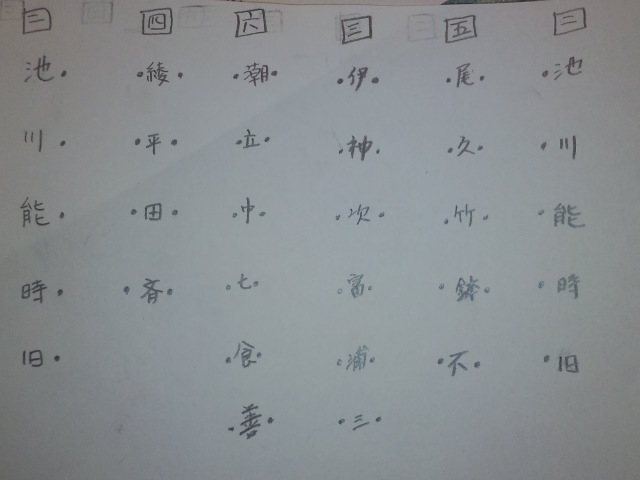 二 四 六 三 五 二
池・ ・綾・ ・潮・ ・伊・ ・尾・ ・池
川・ ・平・ ・立・ ・神・ ・久・ ・川
能・ ・田・ ・中・ ・次・ ・竹・ ・能
時・ ・斉・ ・七・ ・富・ ・鉢・ ・時
旧・ ・食・ ・浦・ ・不・ ・旧
・善・ ・三・